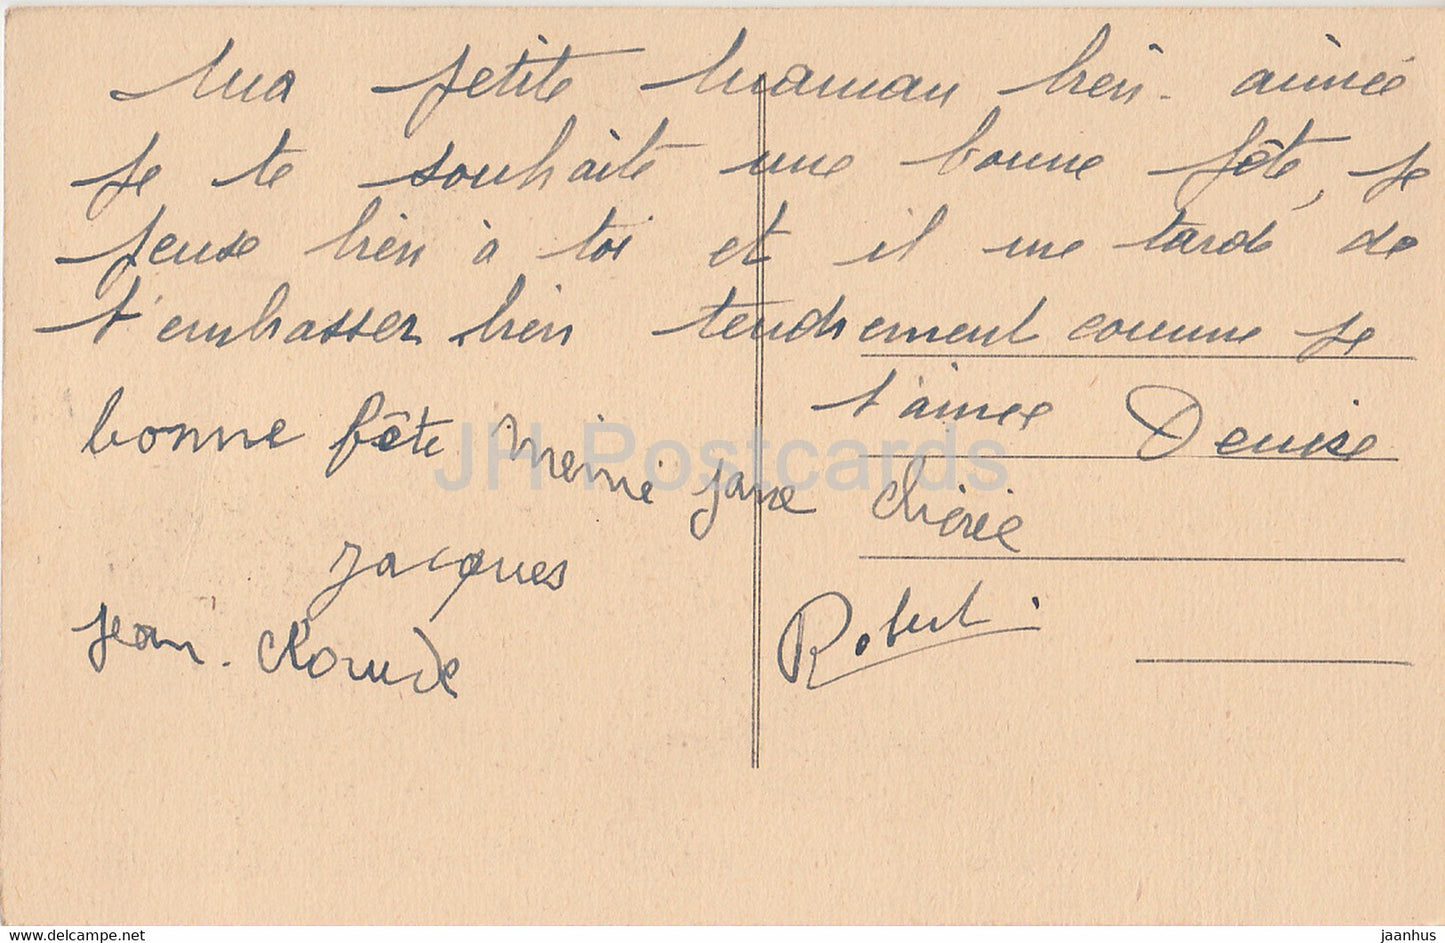 Ma petite maman bien-aimée
je te souhaite une bonne fête, je
pense bien à toi et il me tarde de
t'embrasser bien tendrement comme je
t'aime Denise
bonne fête Mémé jane chérie
Jacques
Jean-Claude
Robert.
JH Postcards
www.delcampe.net
jaanhus